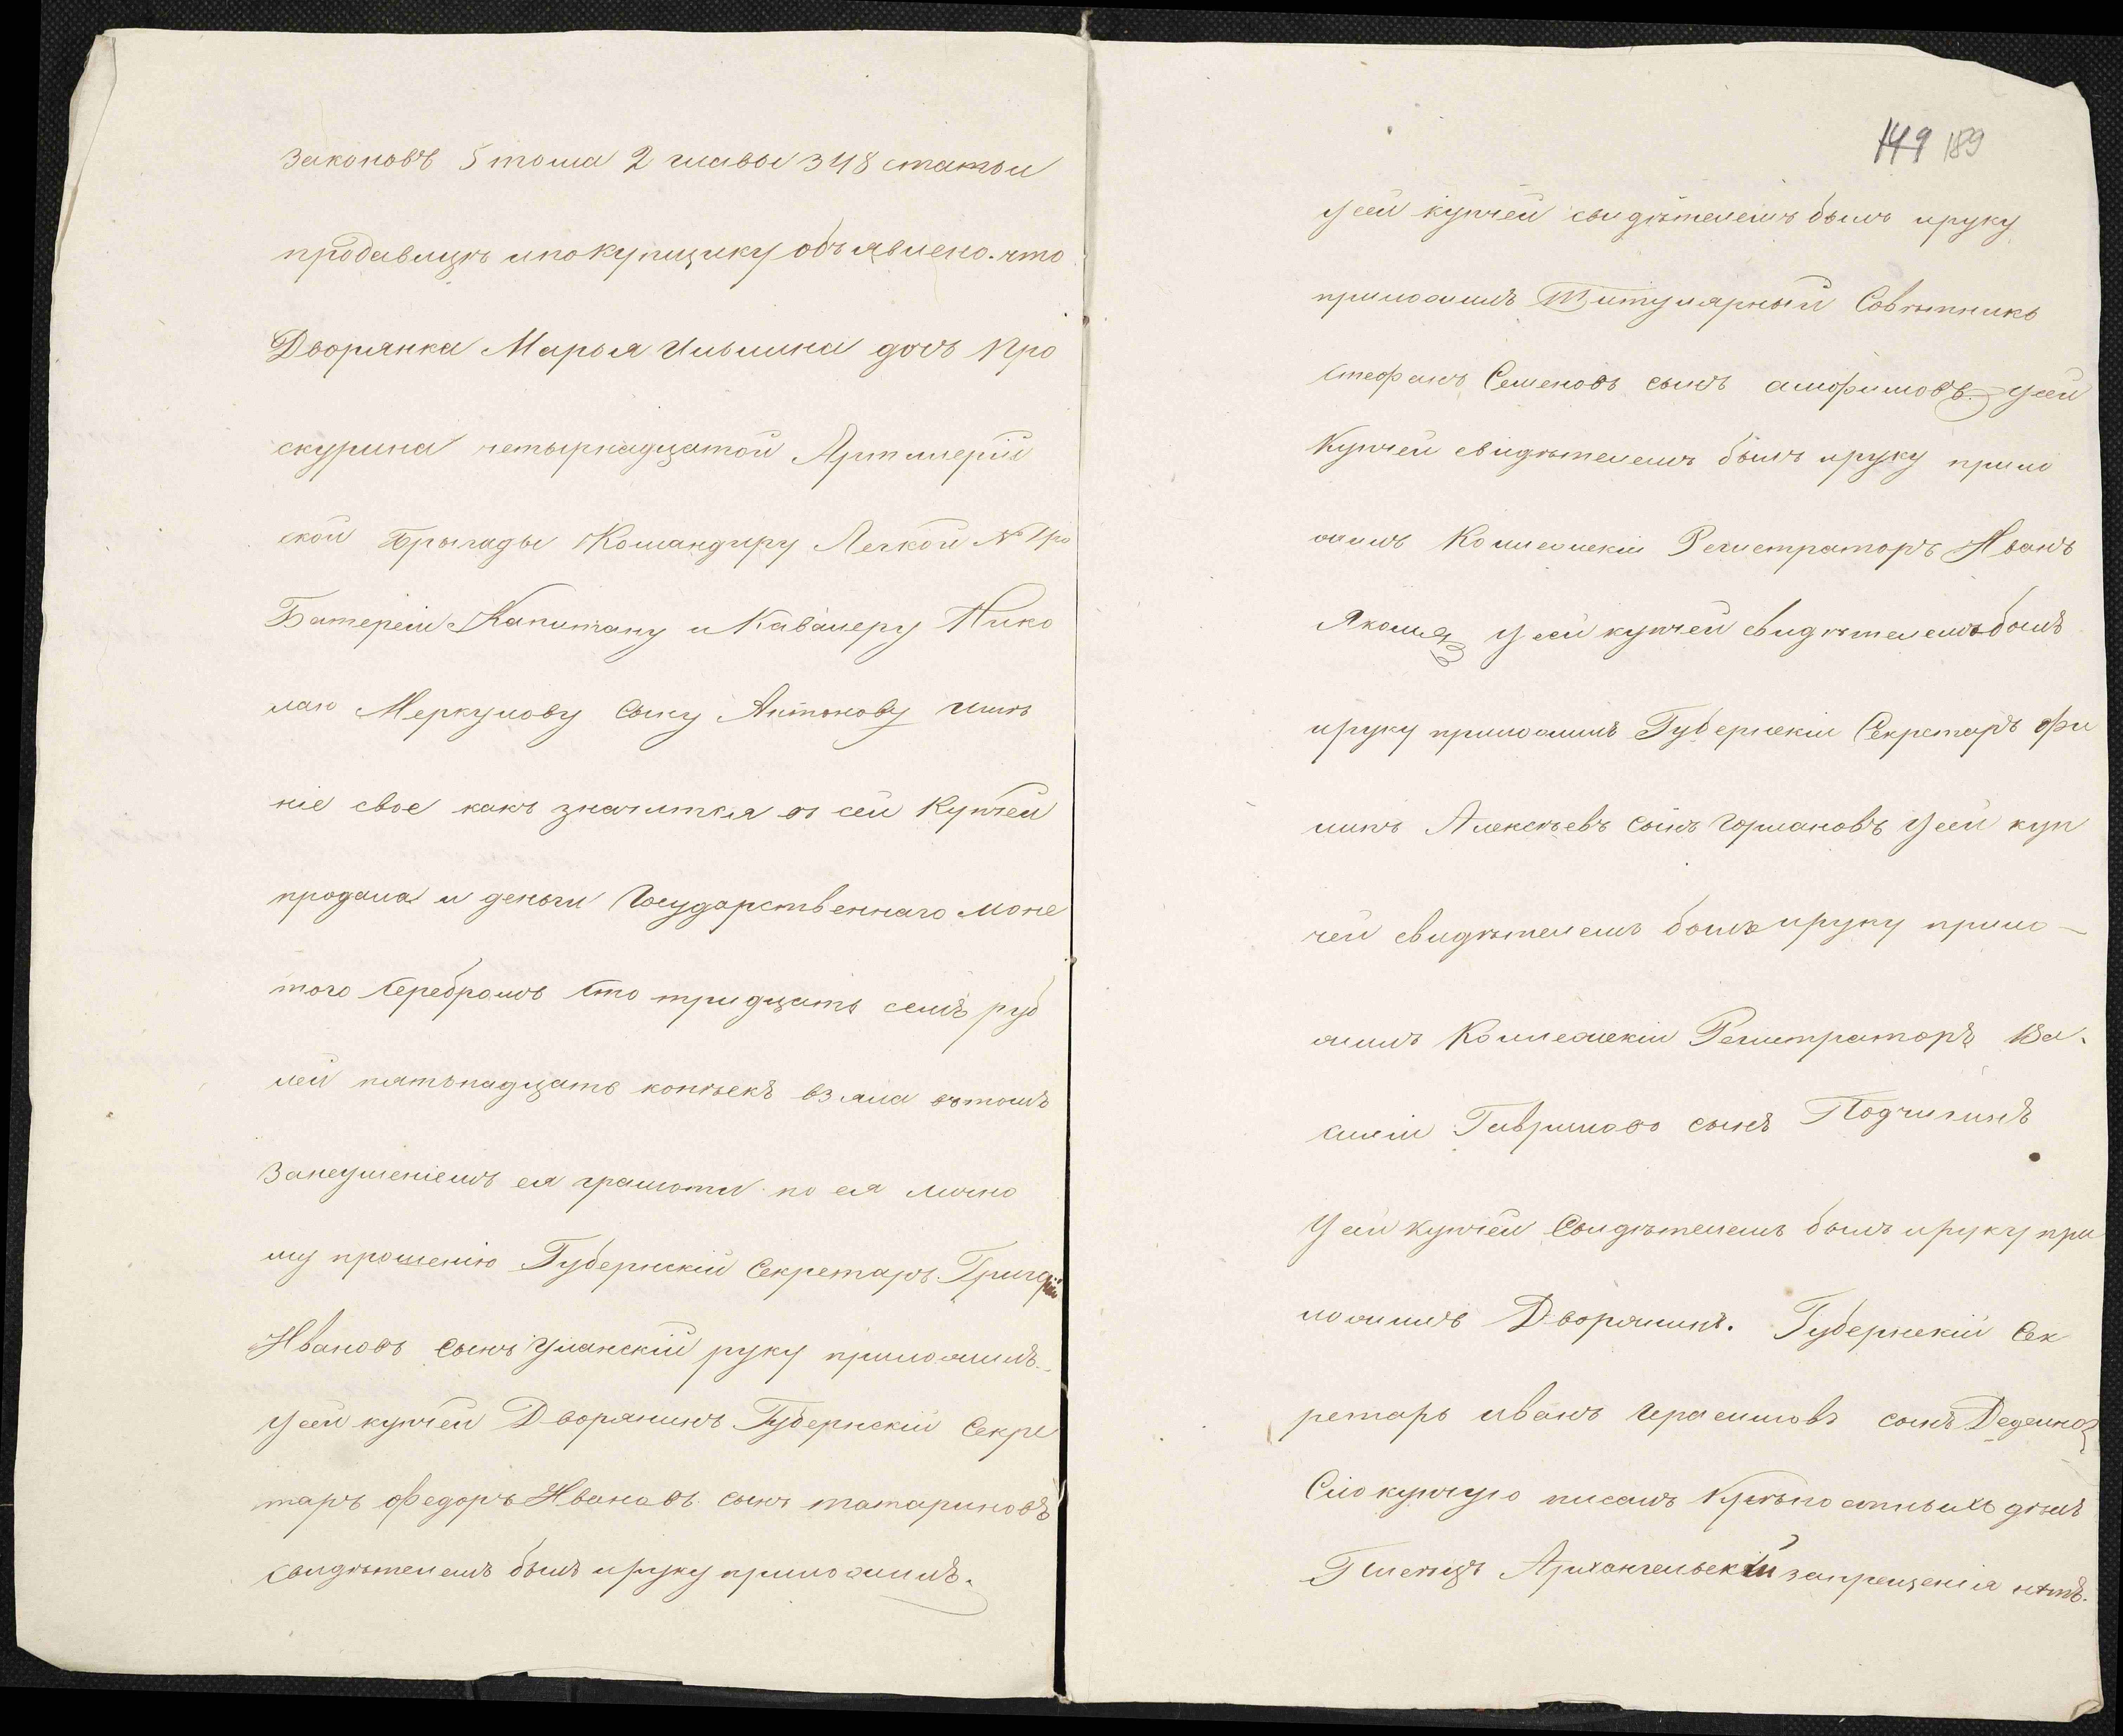 законовъ 5 тома 2 главы 348 статьи
продавицѣ и покупщику объявлено. что
Дворянка Марья Ильина дочь Про
скурина четырнадцатой Артилерій
ской Брыгады Командиру Легкой №
Батереи Капитану и Кавалеру Нико
лаю Меркулову сыну Антонову имѣ
ніе свое какъ значится въ сей Купчей
продала и деньги Государственнаго моне
того Серебромъ сто тридцать семь руб
лей пятьнадцать копѣекъ взяла вътомъ
Занеумѣніемъ ея грамоты по ея лично
му прошенію Губернскій Секретарь Григорій
Ивановъ сынъ Уланскій руку приложилъ.
У сей купчей Дворянинъ Губернскій Секре
тарь Федоръ Ивановъ сынъ Татариновъ
свидѣтелемъ былъ и руку приложилъ.
149 189
У сей купчей свидѣтелемъ былъ и руку
приложилъ Титулярный Совѣтникъ
Стефанъ Семеновъ сынъ У сей
Купчей свидѣтелемъ былъ и руку прило
жилъ Коллежскій Регистраторъ Иванъ
У сей купчей свидѣтелемъ былъ
и руку приложилъ Губернскій Секретарь Фи
липъ Алексѣевъ сынъ Гормановъ У сей куп
чей свидѣтелемъ былъ и руку прило-
жилъ Коллежскій Регистраторъ Ва-
силій Гавриловъ сынъ Подчигинъ
У сей купчей Свидѣтелемъ былъ и руку при
ложилъ Дворянинъ. Губернскій Сек
ретарь иванъ Герасимовъ сынъ
Сію купчую писалъ Крѣпостныхъ дѣлъ
Писецъ Архангельскій запрещенія нѣтъ.